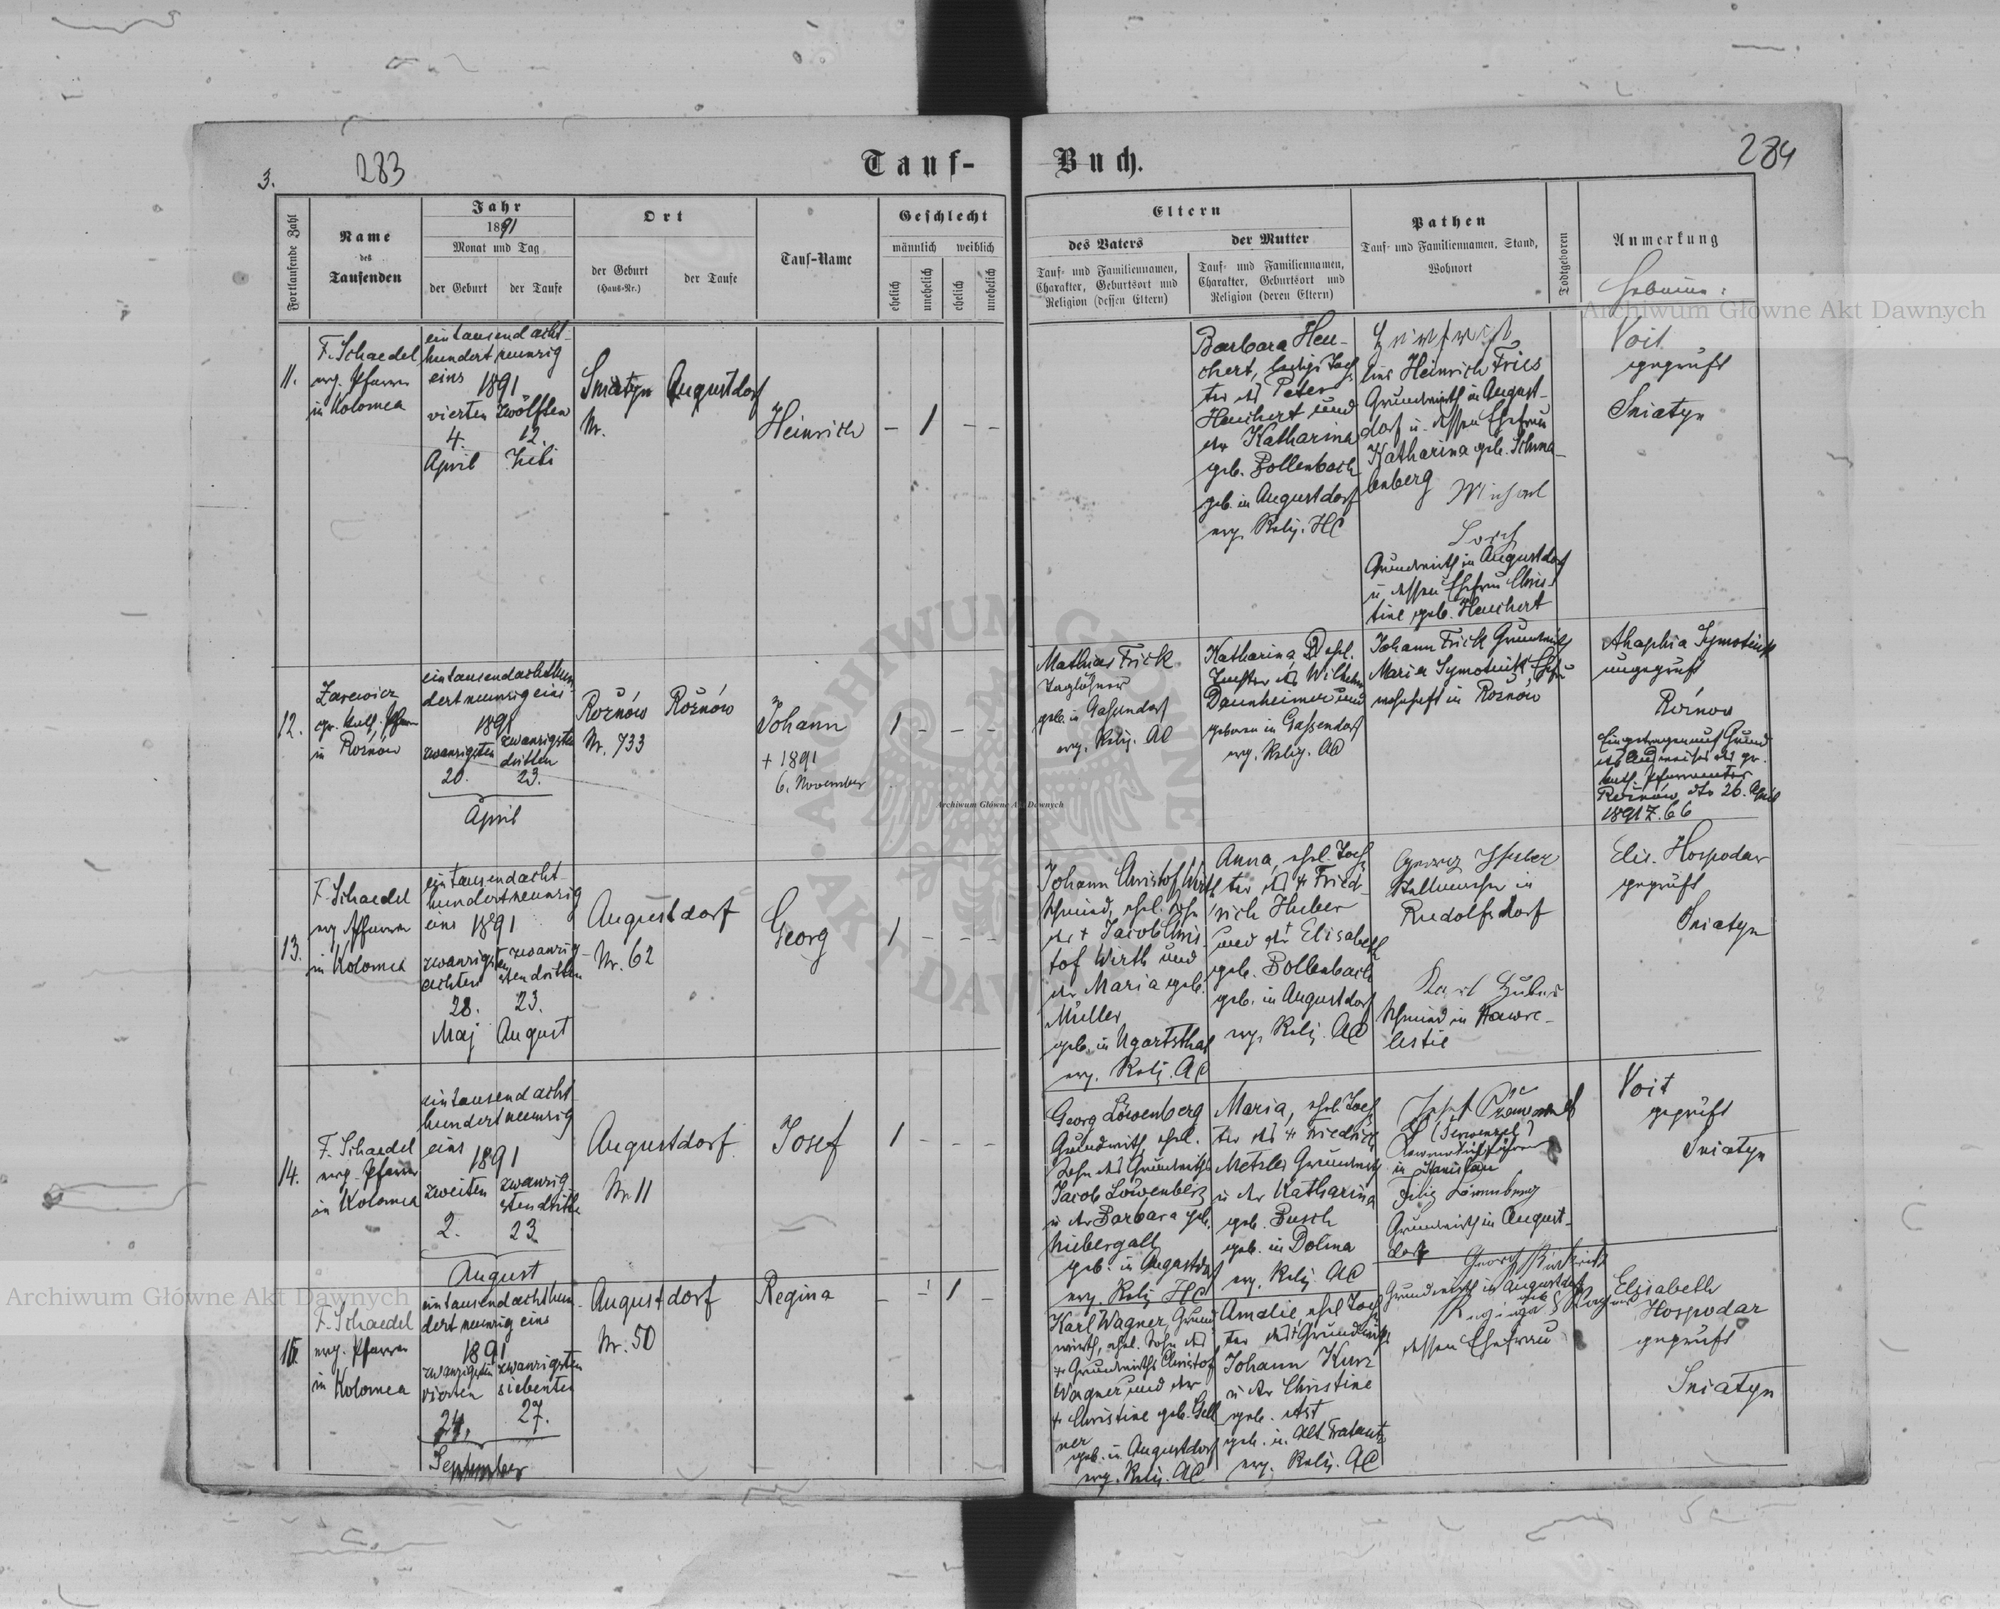 283
284
3.
Tauf- Buch.
Fortlaufende Zahl
Name
des
Taufenden
Jahr
1891
Monat und Tag
der Geburt
der Taufe
Ort
der Geburt
(Haus-Nr.)
der Taufe
Tauf-Name
Geschlecht
männlich
weiblich
ehelich
unehelich
ehelich
unehelich
Eltern
des Vaters
Tauf- und Familiennamen,
Charakter, Geburtsort und
Religion (dessen Eltern)
der Mutter
Tauf- und Familiennamen,
Charakter, Geburtsort und
Religion (deren Eltern)
Pathen
Tauf- und Familiennamen, Stand,
Wohnort
Todtgeboren
Anmerkung
11.
F. Schaedel
evg. Pfarrer
in Kolomea
eintausend acht-
hundert neunzig
eins 1891
vierten
4.
April
zwölften
12.
Juli
Sniatyn
Nr.
Augustdorf
Heinrich
- 1 - -
Barbara Heu-
chert, ledige Toch
ter des Peter
Heuchert und
der Katharina
geb. Bollenbach
geb. in Augustdorf
evg. Relig. HC
Heinrich Fries
Grundwirth in August-
dorf u. dessen Ehefrau
Katharina geb. Schma-
lenberg
Michael
Grundwirth in Augustdorf
u. dessen Ehefrau Chris-
tine geb. Heuchert
Voit
geprüft
Sniatyn
12.
Zarewicz
gr. kath. Pfarrer
in Rożnów
eintausendachthun
dert neunzig eins
1891
zwanzigsten
20.
zwanzigsten
dritten
23.
April
Rożnów
Nr. 733
Rożnów
Johann
+ 1891
6. November
1 - - -
Mathias Frick
Taglöhner
geb. in Gassendorf
evg. Relig. AC
Katharina ehel.
Tochter des Wilhelm
Dannheimer und
geboren in Gassendorf
evg. Relig. AC
Johann Frick Grundwirth
Maria Tymotiuk
wohnhaft in Rożnów
Ahaphia Tymotiuk
ungeprüft
Rożnów
Eingetragen auf Grund
des Ausweises des gr.
kath. Pfarramtes
Rożnów dto 26. April
1891 Z. 66
13.
F. Schaedel
evg. Pfarrer
in Kolomea
eintausendacht-
hundertneunzig
eins 1891
zwanzigsten
achten
28.
Maj
zwanzig-
sten dritten
23.
August
Augustdorf
Nr. 62
Georg
1 - - -
Johann Christof Wirth
Schmied, ehel. Sohn
des + Jacob Chris
tof Wirth und
der Maria geb.
Müller
geb. in Ugartsthal
evg. Relig. AC
Anna, ehel. Toch
ter des + Fried-
rich Huber
und der + Elisabeth
geb. Bollenbach
geb. in Augustdorf
evg. Relig. AC
Georg Huber
Stellmacher in
Rudolfsdorf
Karl Huber
Schmied in Hawre-
lestie
Elis. Hospodar
geprüft
Sniatyn
14.
F. Schaedel
evg. Pfarrer
in Kolomea
eintausend acht-
hundert neunzig
eins 1891
zweiten
2.
zwanzig-
sten dritte
23
August
Augustdorf
Nr. 11
Josef
1 - - -
Georg Löwenberg
Grundwirth, ehel.
Sohn des Grundwirths
Jacob Löwenberg
u. der Barbara geb.
Niebergall
geb. in Augustdorf
evg. Relig. HC
Maria, ehel. Toch
ter des + Friedrich
Metzler Grundwirth
u. der Katharina
geb. Busch
geb. in Dolina
evg. Relig. AC
Josef
in Stanislau
Filip Löwenberg
Grundwirth in August-
dorf
Voit
geprüft
Sniatyn
15.
F. Schaedel
evg. Pfarrer
in Kolomea
eintausendachthun
dert neunzig eins
1891
zwanzigsten
vierten
24.
zwanzigsten
siebenten
27.
September
Augustdorf
Nr. 50
Regina
- - 1 -
Karl Wagner, Grund
wirth, ehel. Sohn des
+ Grundwirths Christof
Wagner und der
+ Christine geb. Gell
ner
geb. in Augustdorf
evg. Relig. AC
Amalie, ehel. Toch
ter des + Grundwirths
Johann Kurz
u. der Christine
geb. Ast
geb. in Alt Fratautz
evg. Relig. AC
Georg
Grundwirth in Augustdorf
Regina geb. Wagner
dessen Ehefrau
Elisabeth
Hospodar
geprüft
Sniatyn
Archiwum Główne Akt Dawnych
Archiwum Główne Akt Dawnych
Archiwum Główne Akt Dawnych
ARCHIWUM GŁÓWNE · AKT DAWNYCH ·